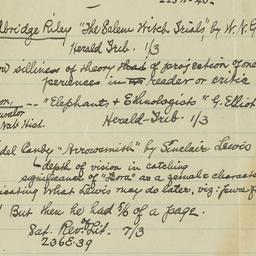 lbridge Riley "The Salem Witch Trials", by W. N. G
Herald Trib. 1/3
silliness of theory of projection of one
periences in reader or critic
-- "Elephants & Ethnologists" G. Elliot
Nat. Hist. Herald-Trib. 1/3
del Canby "Arrowsmith" by Sinclair Lewis
depth of vision in catching
significance of "Leora" as a general character
icating what Lewis may do later, viz:
! But then he had 5/6 of a page.
Sat. Rev. of Lit. 7/3
236E.39